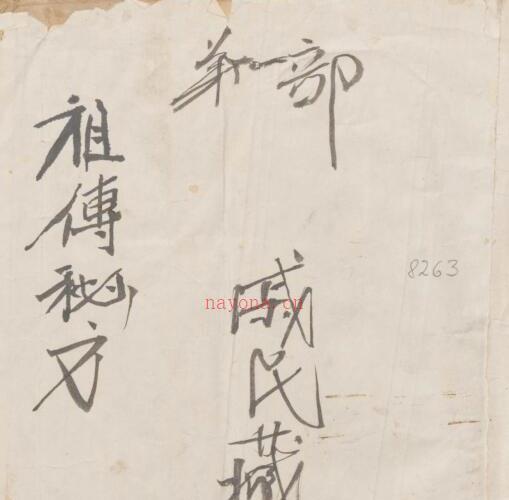 第一部
戚民藏
祖傳秘方
8263
nayona.cn